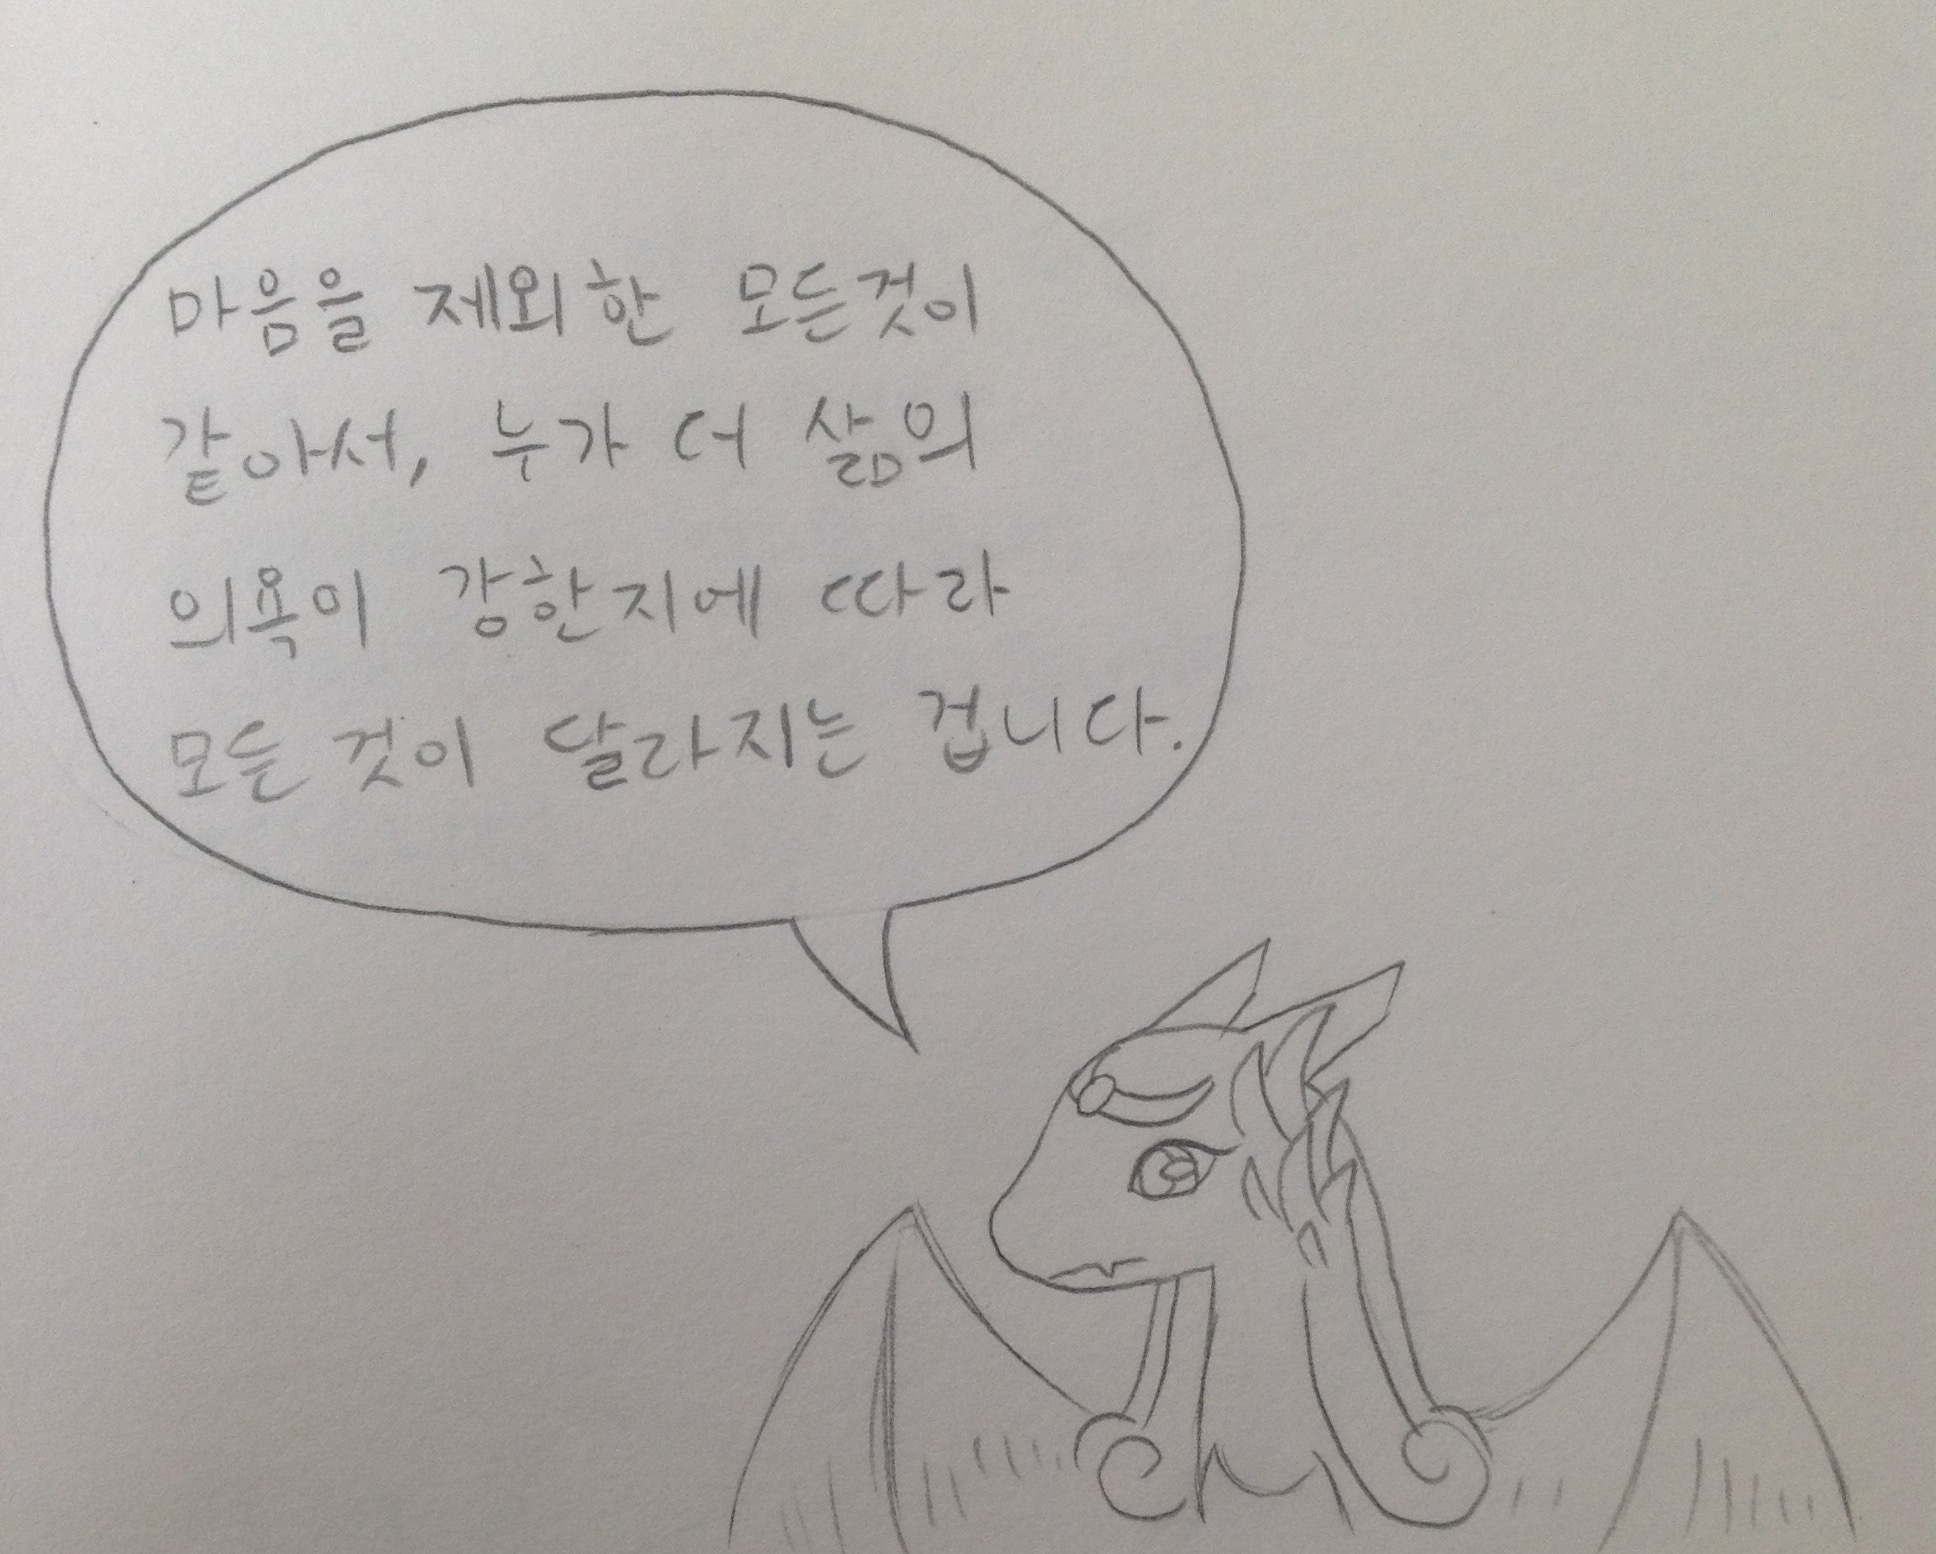 마음을 제외한 모든것이
같아서, 누가 더 삶의
의욕이 강한지에 따라
모든 것이 달라지는 겁니다.